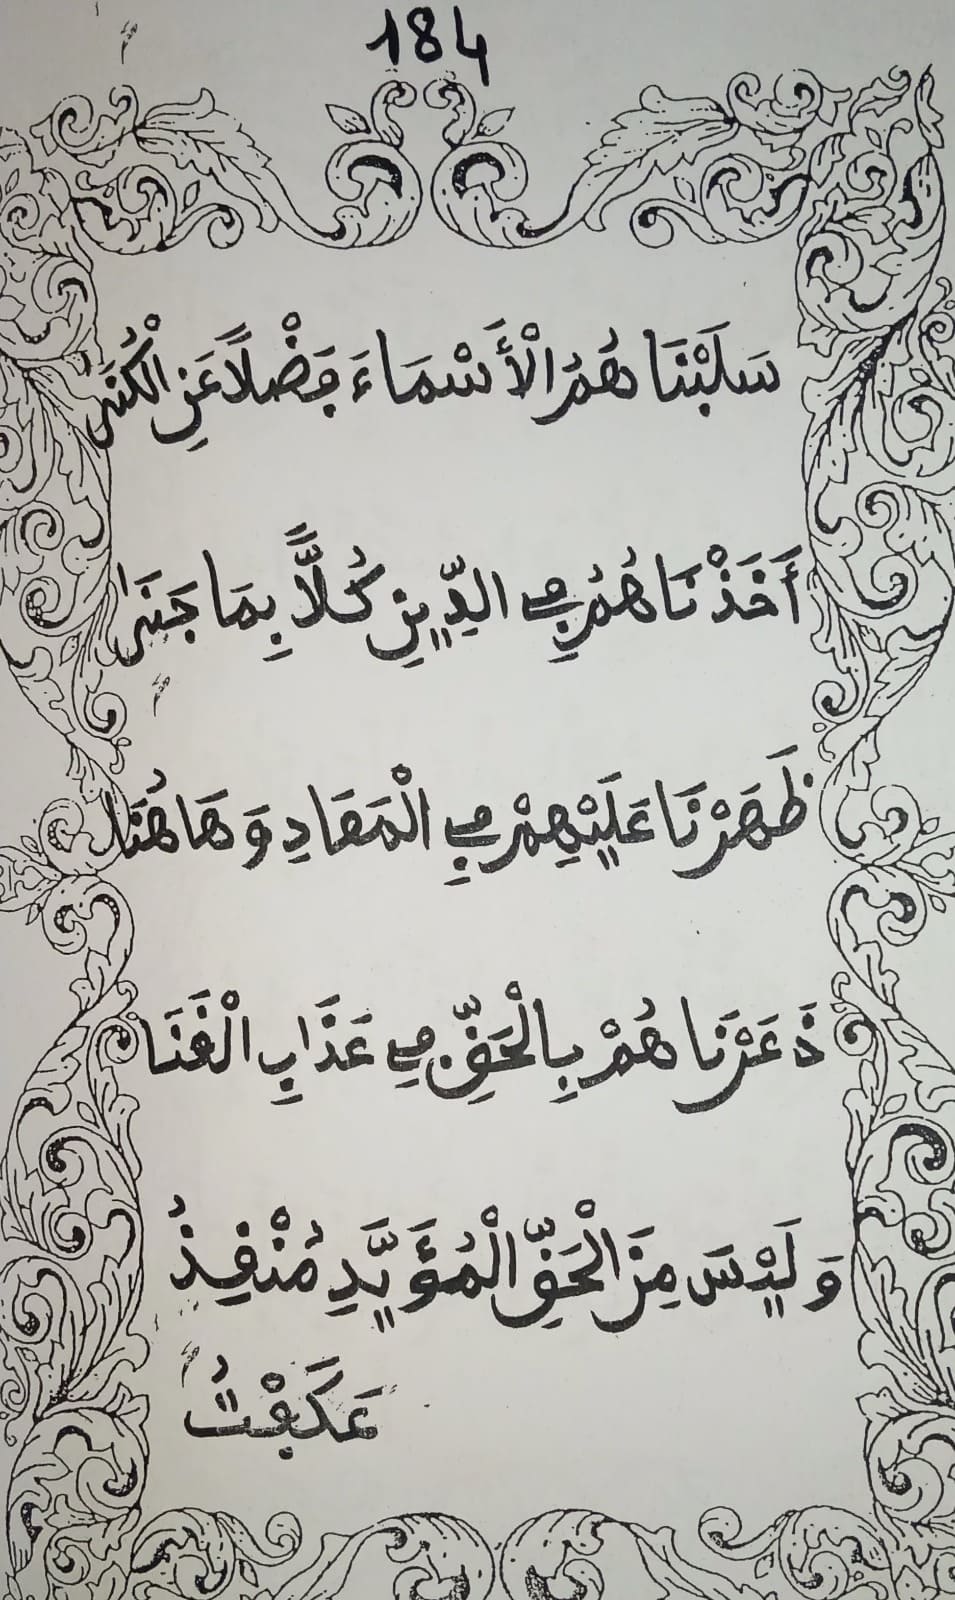 184
سَلَبْنَاهُمُ الْأَسْمَاءَ فَضْلًا عَنِ الْكُنَى
أَخَذْنَاهُمُ فِي الدِّينِ كُلًّا بِمَا جَنَى
ظَهَرْنَا عَلَيْهِمْ فِي الْمَعَادِ وَهَاهُنَا
ذَعَرْنَاهُمْ بِالْحَقِّ فِي عَذَابِ الْقَنَا
وَلَيْسَ مِنَ الْحَقِّ الْمُؤَيَّدِ مُنْقِذُ
عَكَفْتُ